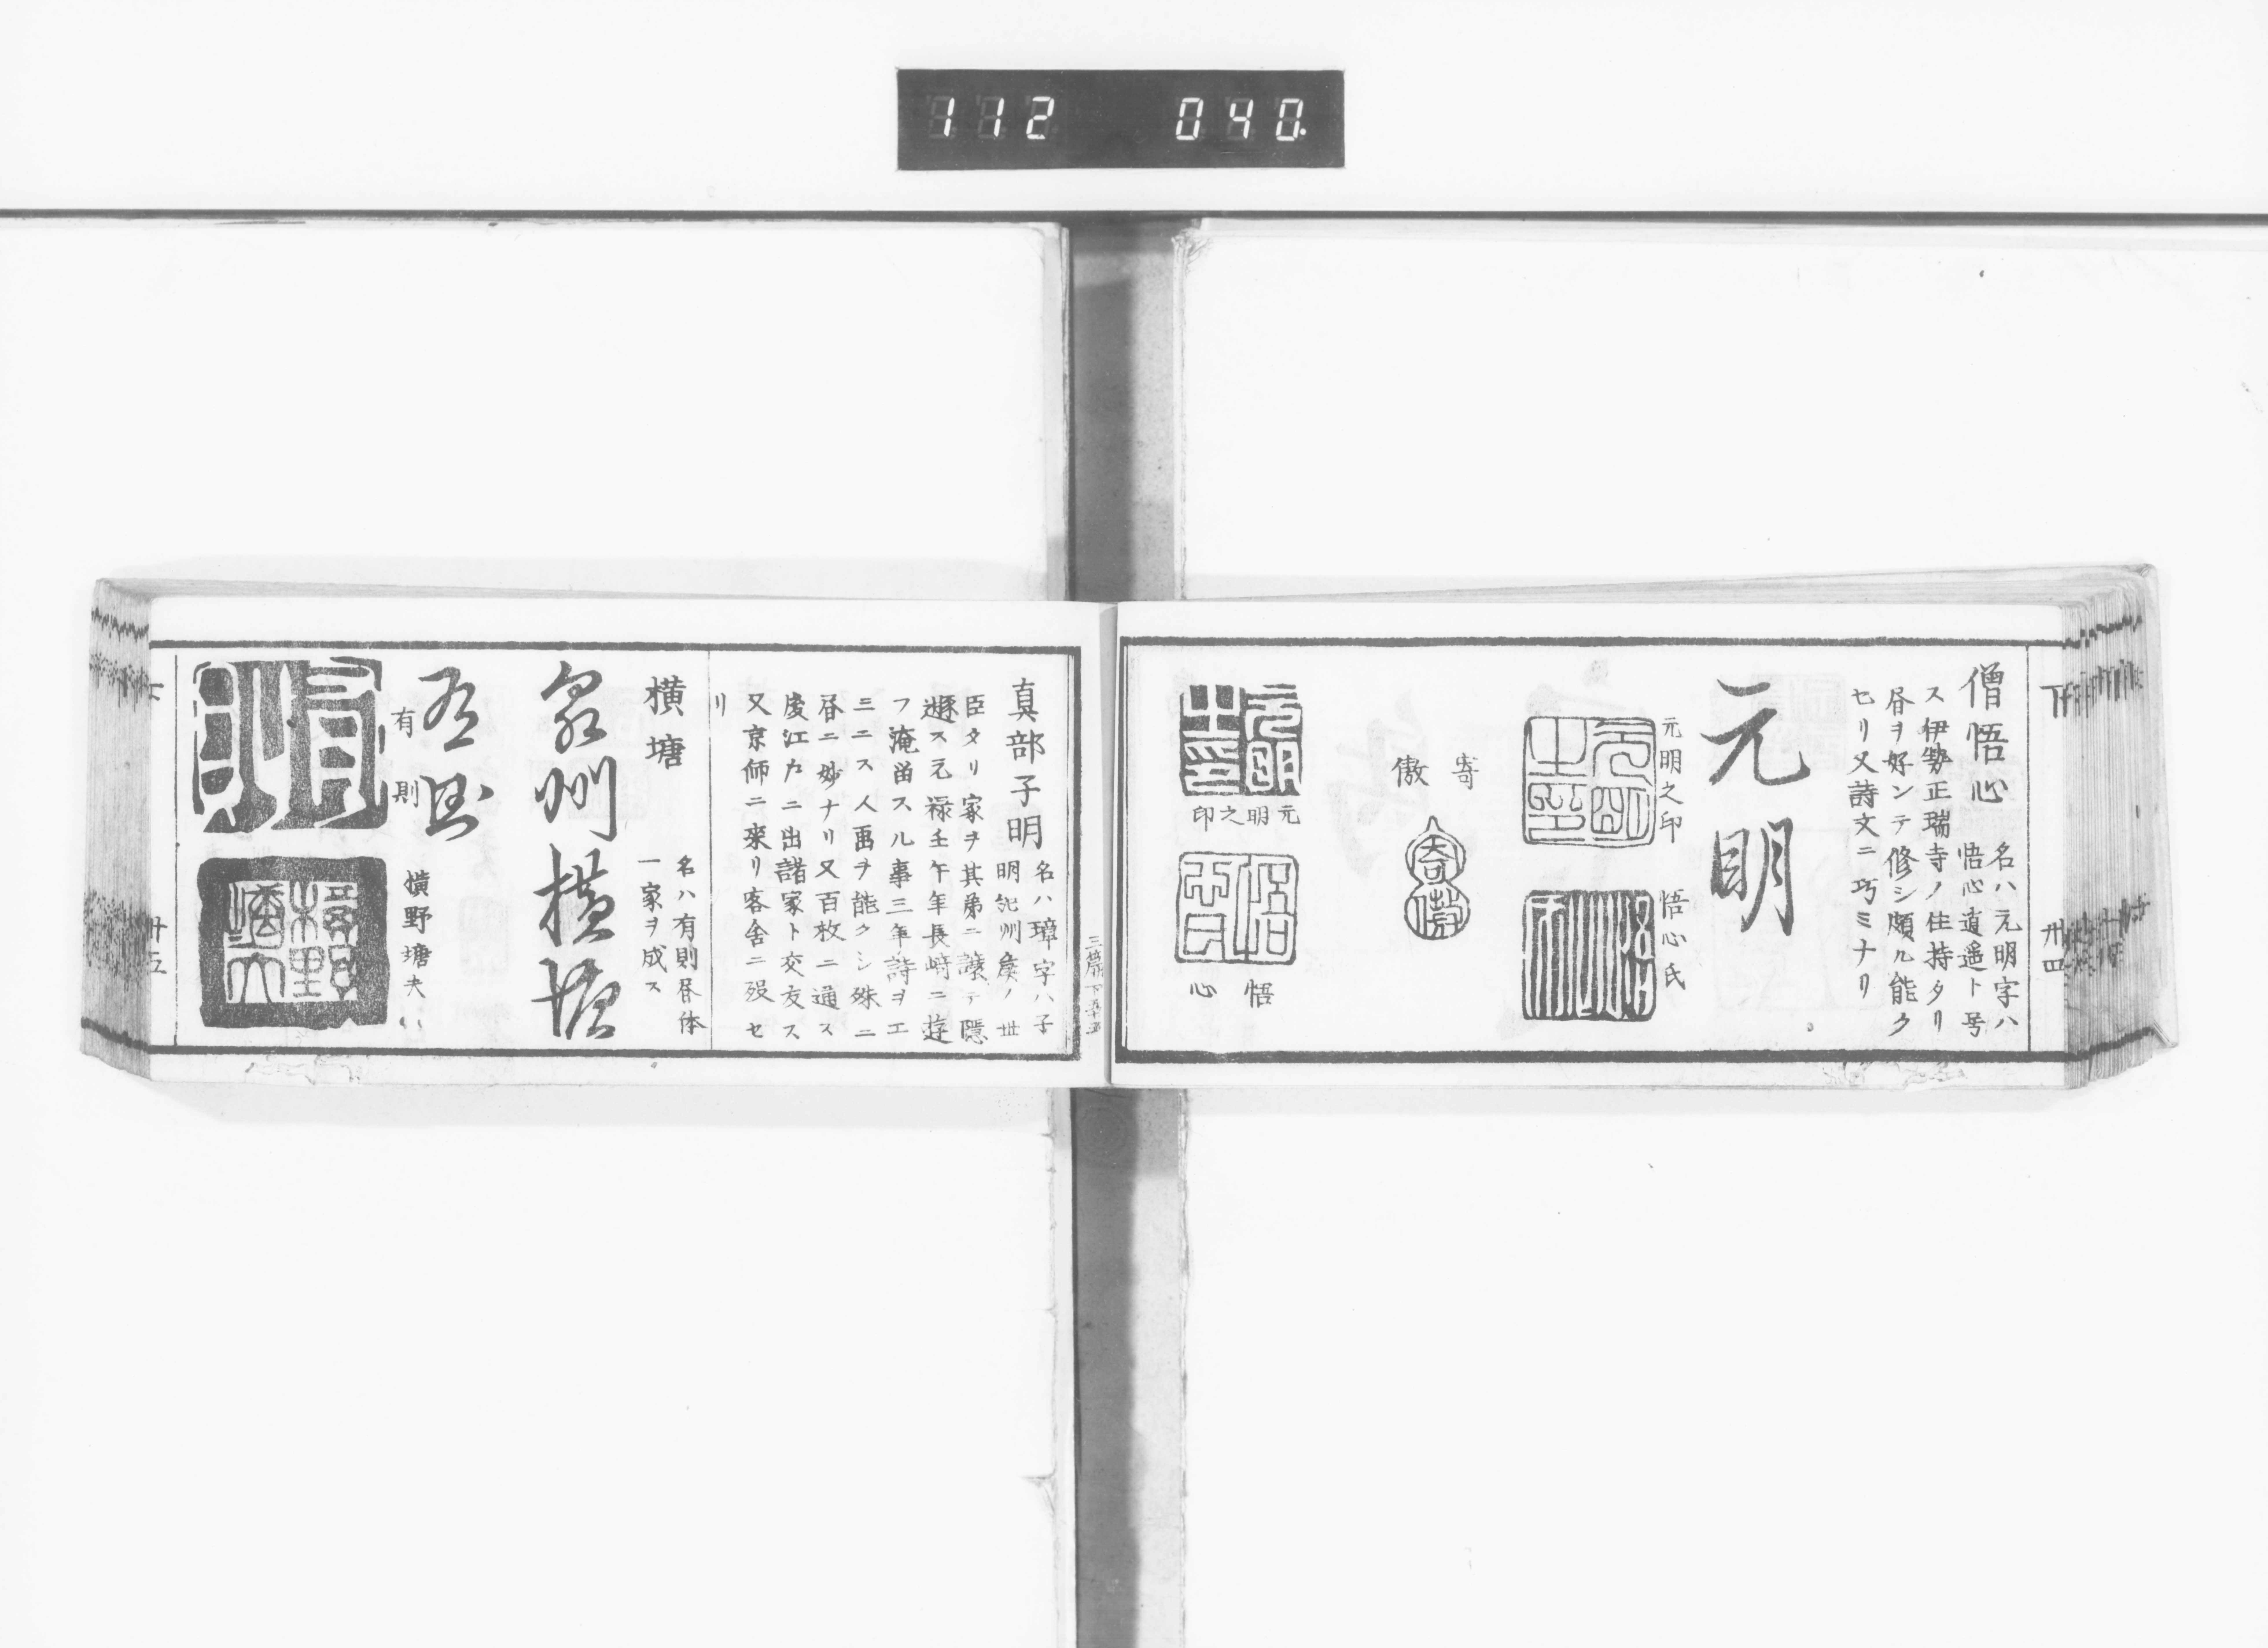 112 040
下 卅四
僧悟心 名ハ元明字ハ
悟心逍遥ト号
ス伊勢正瑞寺ノ住持タリ
昼ヲ好ンテ修シ頗ル能ク
セリ又詩文ニ巧ミナリ
元明
元明之印
悟心氏
寄傲
元明之印
悟心
真部子明 名ハ璋字ハ子
明紀州矦ノ世
臣タリ家ヲ其弟ニ譲テ隠
遯ス元禄壬午年長崎ニ遊
フ淹畄スル事三年詩ヲエ
ミニス人畵ヲ能クシ殊ニ
昼ニ妙ナリ又百枚ニ通ス
後江左ニ出諸家ト交友ス
又京師ニ來リ客舎ニ歿セ
リ
横塘 名ハ有則昼体
一家ヲ成ス
泉州横塘
有則
有則
横野塘夫
卅五